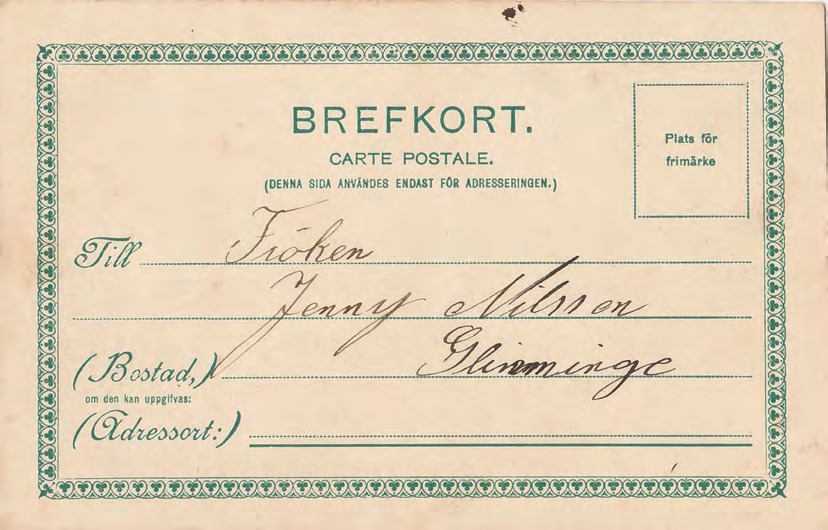 BREFKORT.
CARTE POSTALE.
(DENNA SIDA ANVÄNDES ENDAST FÖR ADRESSERINGEN.)
Plats för
frimärke
Till Fröken
Jenny Nilsson
(Bostad,) Glimminge
om den kan uppgifvas:
(Adressort:)